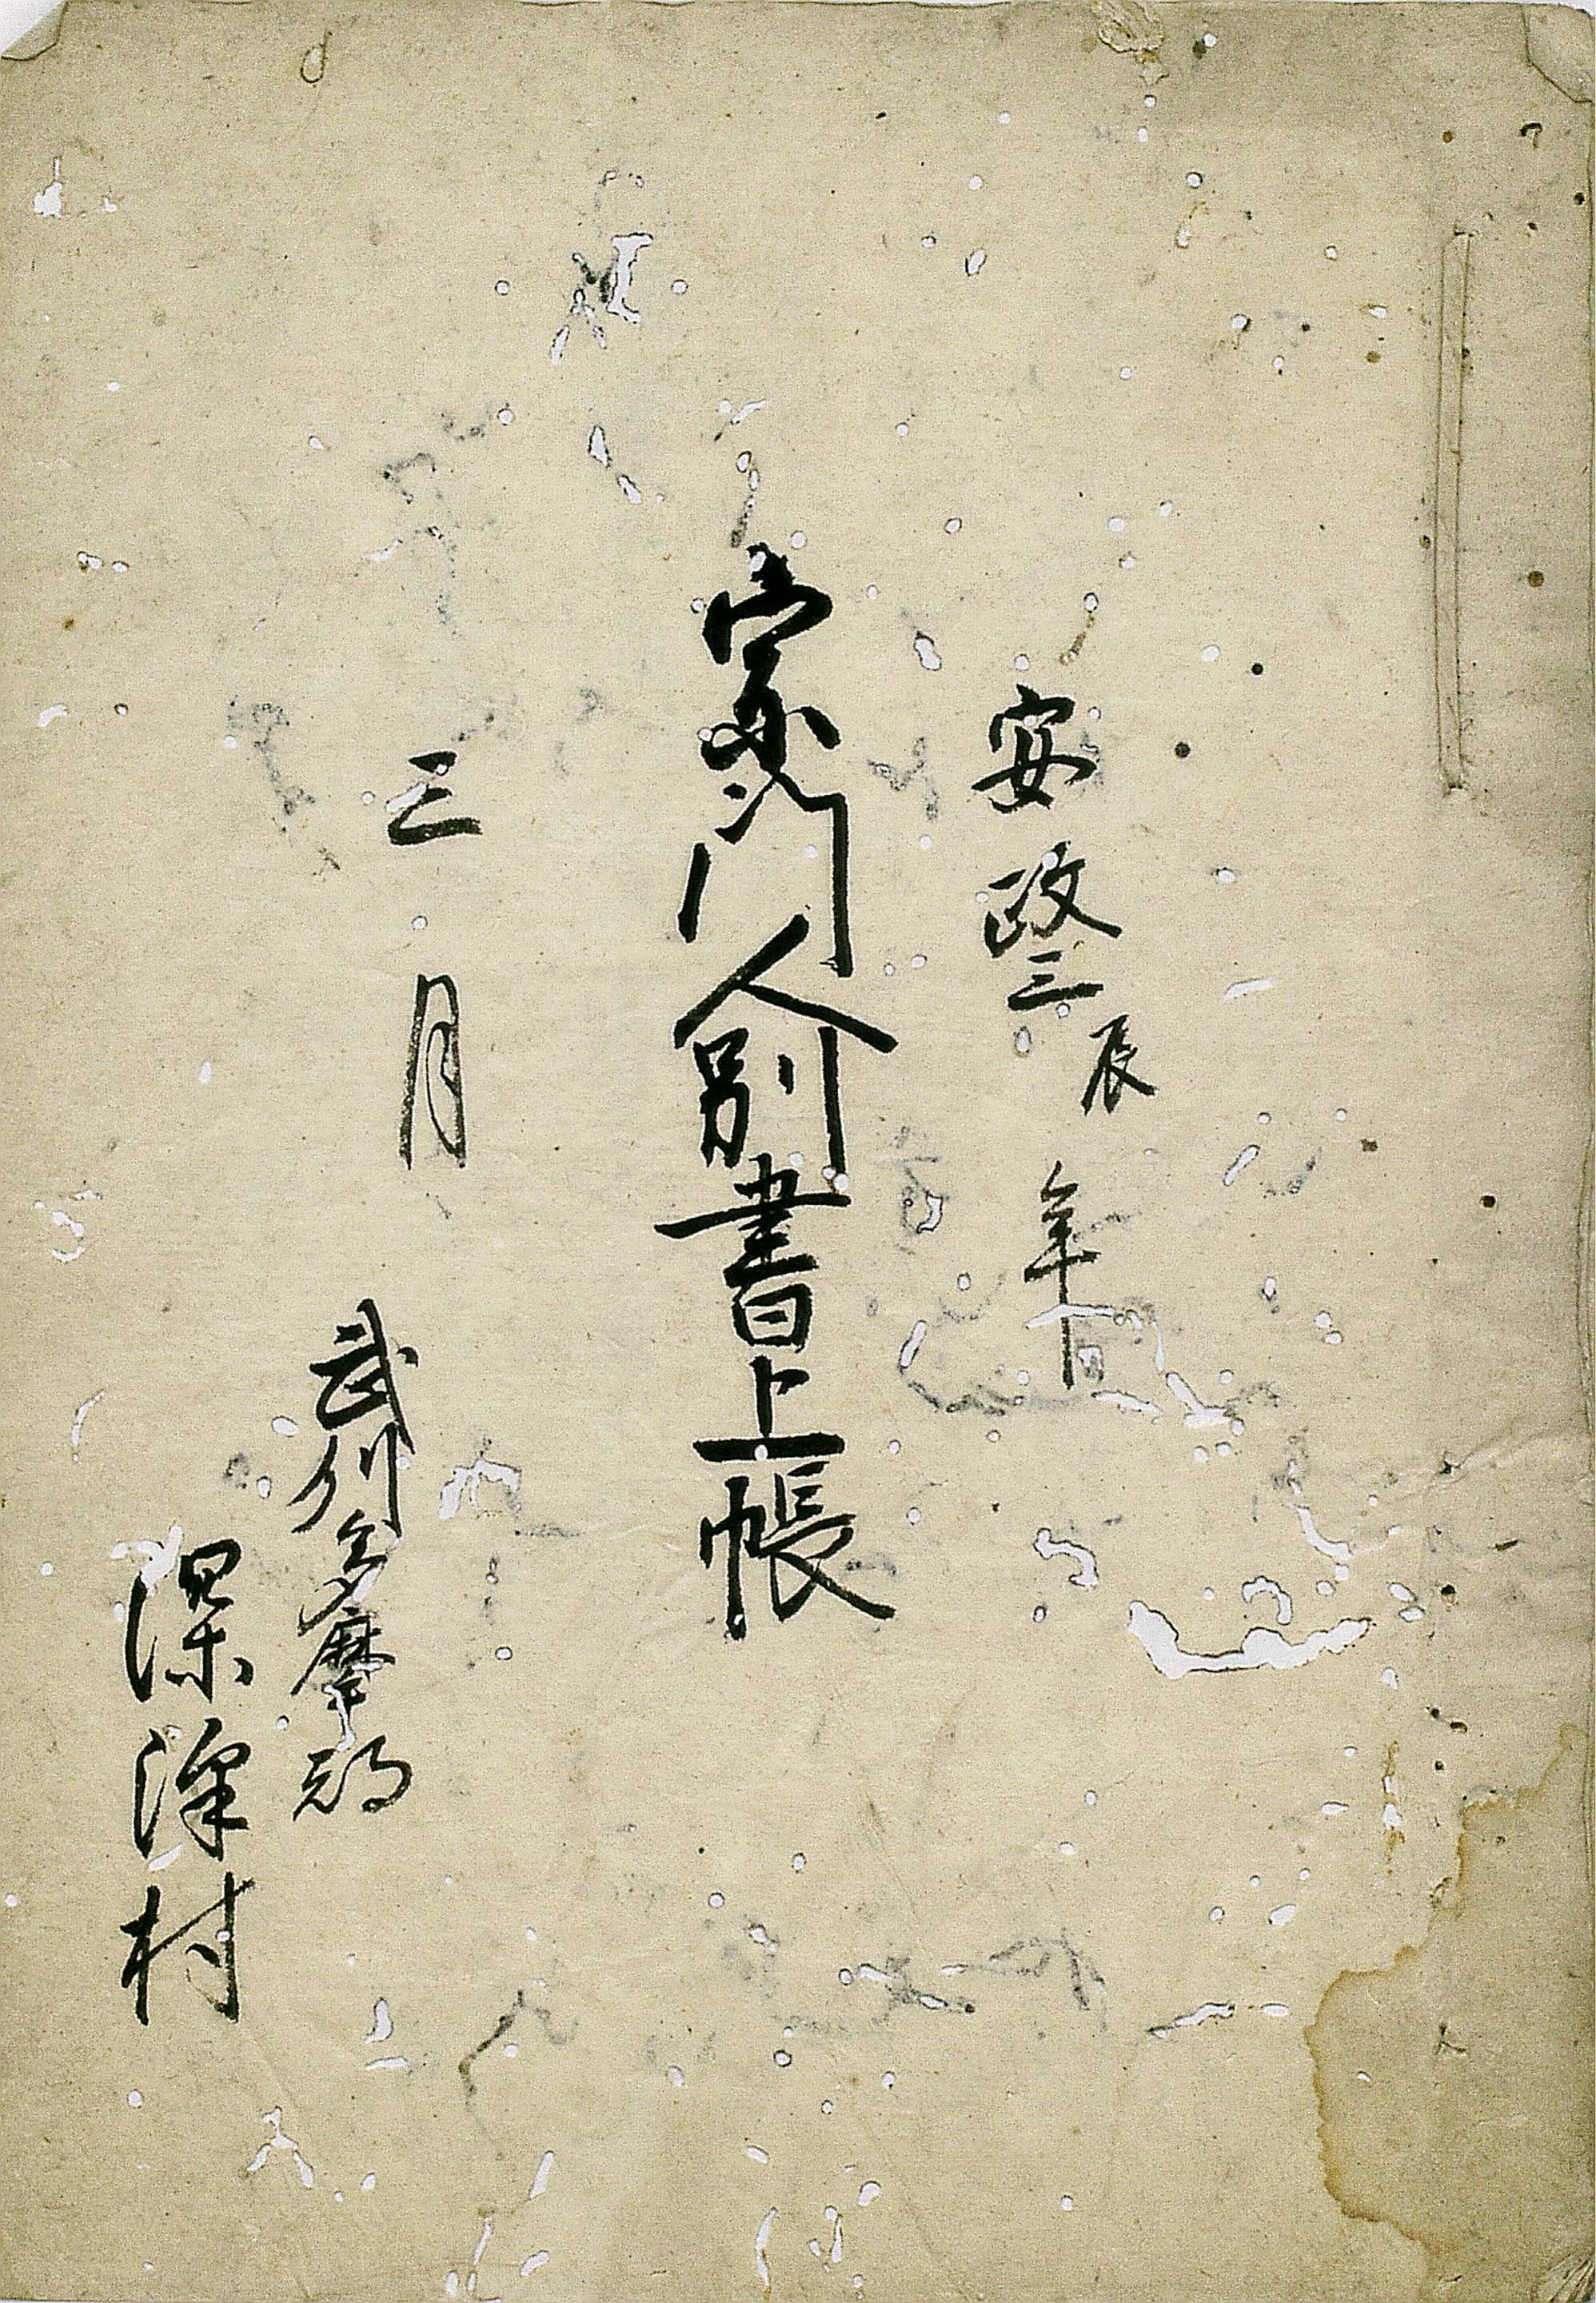 安政三辰年
宗門人別書上帳
三月
武州多摩郡
深澤村